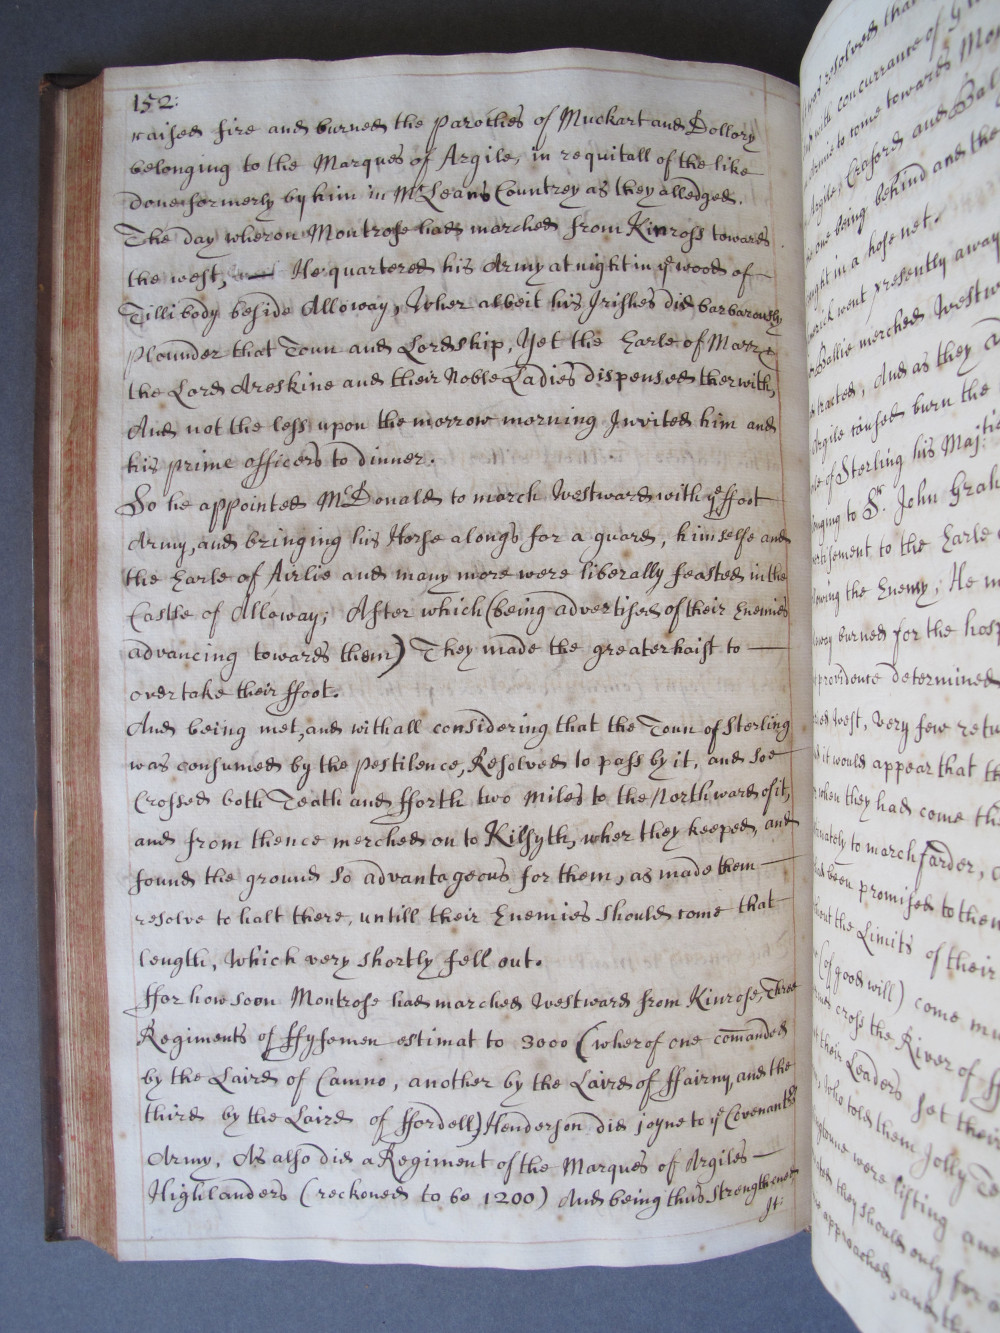 152:
raised fire and burned the Paroches of Muckart and Dollory
belonging to the Marques of Argile, in requitall of the like
done formerly by him in McLeans Countrey as they alledged.
The day wheron Montrose hade marched from Kinross towards
the west, He quartered his Army at night in ye wood of
Tillibody beside Alloway, Wher albeit his Irishes did barbarously
Plounder that Toun and Lordship, Yet the Earle of Marr &
the Lord Areskine and their Noble Ladies dispensed therwith,
And not the less upon the morrow morning Invited him and
his prime officers to dinner.
So he appointed McDonald to march Westward with ye ffoot
Army, and bringing his Horse alongs for a guard, himselfe and
the Earle of Airlie and many more were liberally feasted in the
Castle of Alloway; After which (being advertised of their Enemies
advancing towards them) They made the greater haist to
overtake their ffoot.
And being met, and withall considering that the Toun of Sterling
was consumed by the Pestilence, Resolved to pass by it, and soe
Crossed both Teath and fforth two Miles to the Northward of it,
and from thence merched on to Kilsyth, wher they keeped, and
found the ground so advantageous for them, as made them
resolve to halt there, untill their Enemies should come that
length, Which very shortly fell out.
ffor how soon Montrose had marched Westward from Kinrose, Three
Regiments of ffyfemen estimat to 3000 (wherof one comanded
by the Laird of Camno, another by the Laird of ffairny, and the
third by the Laird of ffordell) Henderson did joyne to ye Covenants
Army, As also did a Regiment of the Marques of Argiles
Highlanders (reckoned to be 1200) And being thus strengthened
It:
resolved that
with concurrance of
to come towards Mon
Argile, Craford and Bal
one being behind and the
in a hose net.
went presently away
Bailie merched Westw
And as they
Argile caused burn the
of Sterling his Maj:tie
to Sr. John Grah
to the Earle
the Enemy; He
burned for the hosp
providence determined
West, Very few retu
it would appear that th
when they had come the
to march farder,
been promised to them
the Limits of their
(of good will) come
cross the River of ff
their Leaders set their
who told them Jolly
were lifting and
they should only for
approached, and th